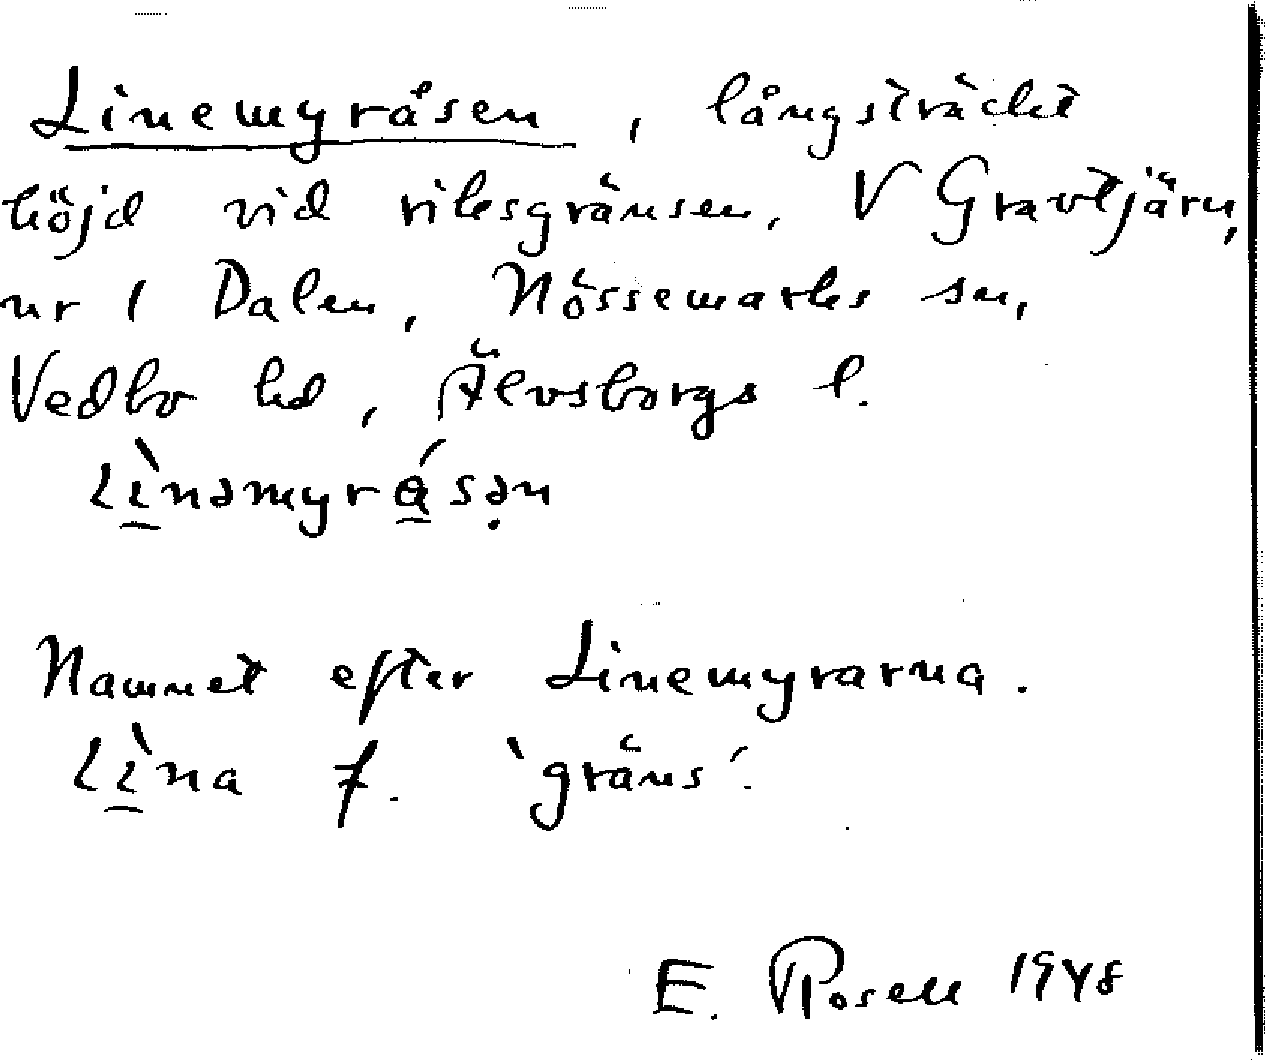 Linemyråsen, långsträckt
höjd vid riksgränsen, V Gravtjärn,
nr 1 Dalen, Nössemarks sn,
Vedbo hd, Älvsborgs l.
Lı̀nəmyråsən
Namnet efter Linemyrarna.
Lı̀na f. 'gräns'.
E. Rosell 1948